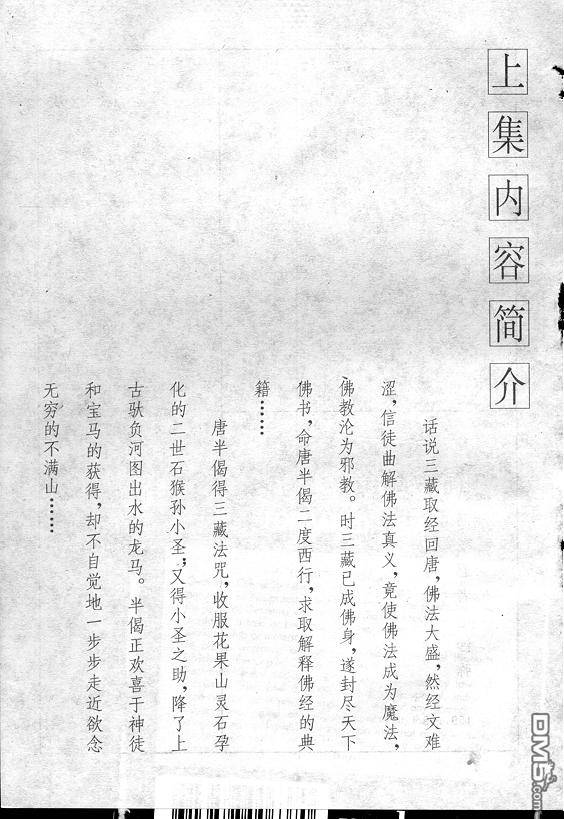 上集内容简介
话说三藏取经回唐，佛法大盛，然经文难
涩，信徒曲解佛法真义，竟使佛法成为魔法，
佛教沦为邪教。时三藏已成佛身，遂封尽天下
佛书，命唐半偈二度西行，求取解释佛经的典
籍……
唐半偈得三藏法咒，收服花果山灵石孕
化的二世石猴孙小圣；又得小圣之助，降了上
古驮负河图出水的龙马。半偈正欢喜于神徒
和宝马的获得，却不自觉地一步步走近欲念
无穷的不满山……
DM5.com